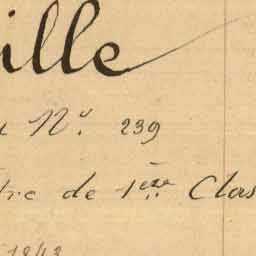 ille
Nº. 239
tre de 1ère Clas
1843